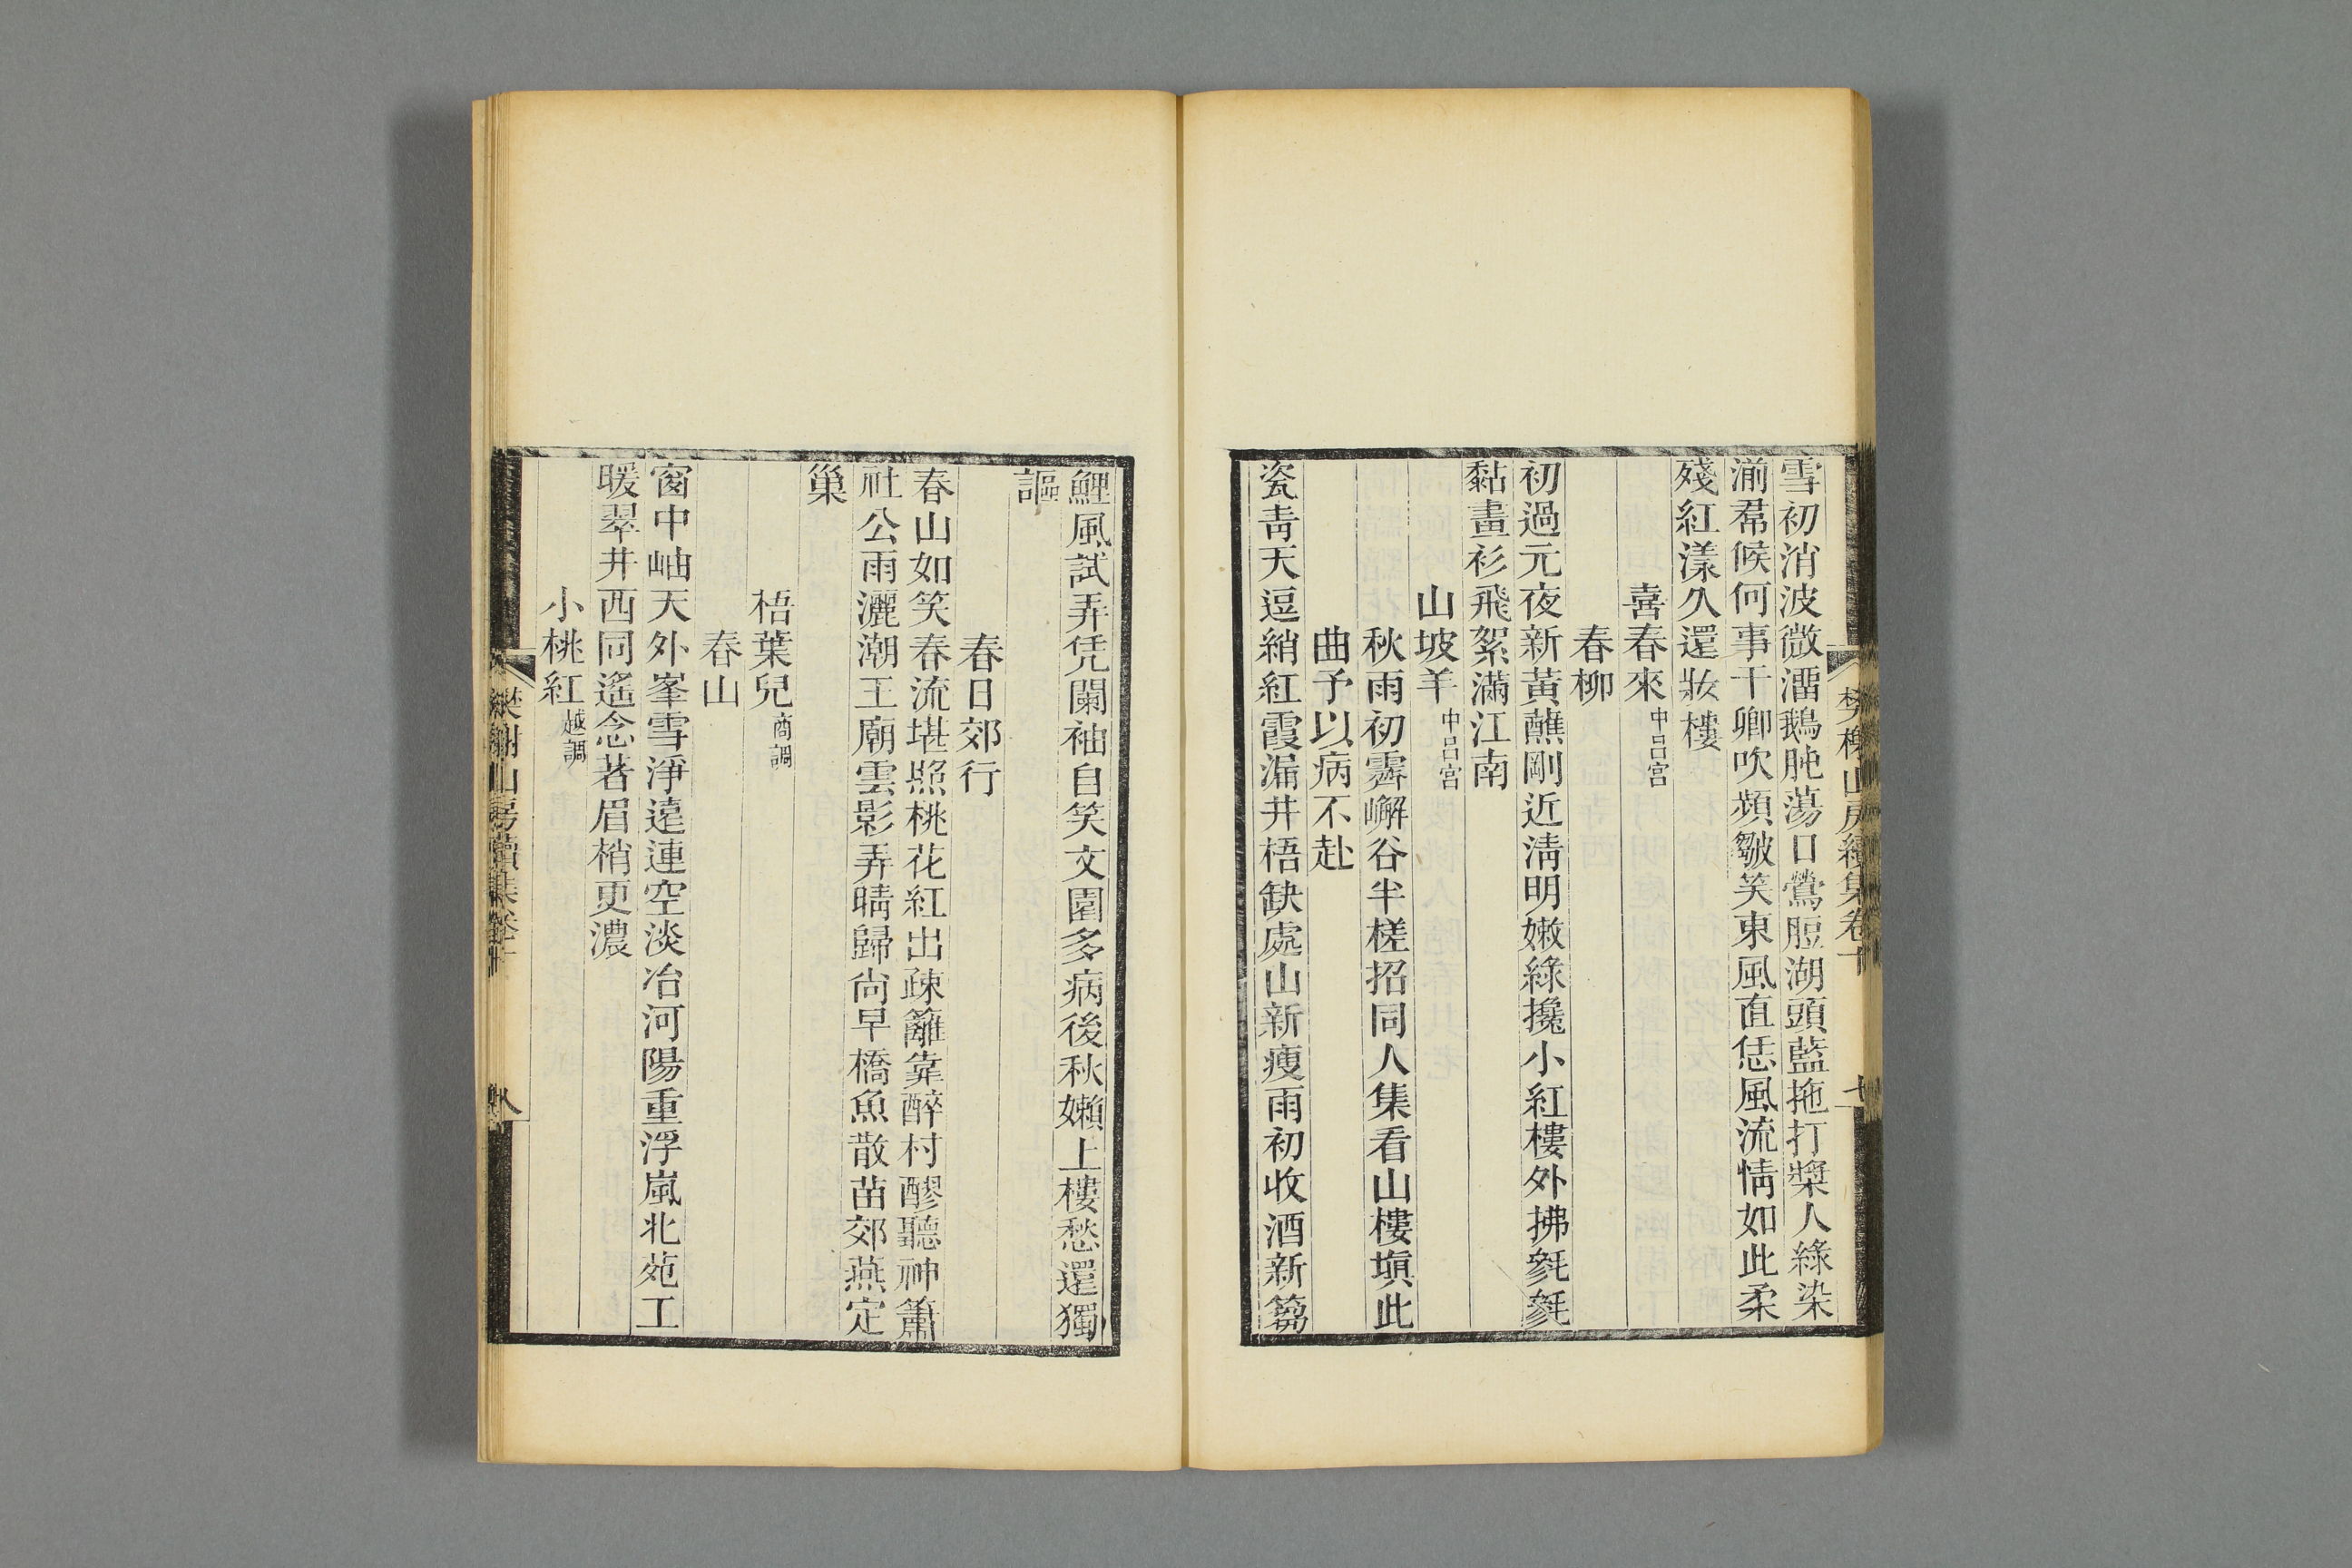 雪初消波微溜鵝肫蕩口鶯脰湖頭藍拖打槳人綠染
湔帬候何事干卿吹頻皺笑東風直恁風流情如此柔
殘紅漾久還妝樓
喜春來中呂宮
春柳
初過元夜新黃蘸剛近清明嫩綠攙小紅樓外拂毿毿
黏畫衫飛絮滿江南
山坡羊中呂宮
秋雨初霽嶰谷半槎招同人集看山樓塡此
曲予以病不赴
瓷靑天逗綃紅霞漏井梧缺處山新瘦雨初收酒新篘
樊榭山房續集卷十
鯉風試弄凭闌袖自笑文園多病後秋嬾上樓愁還獨
謳
春日郊行
春山如笑春流堪照桃花紅出疎籬靠醉村醪聽神簫
社公雨灑潮王廟雲影弄晴歸尙早橋魚散苗郊燕定
巢
梧葉兒商調
春山
窗中岫天外峯雪淨遠連空淡冶河陽重浮嵐北苑工
暖翠井西同遙念著眉梢更濃
小桃紅越調
樊榭山房續集卷十
八